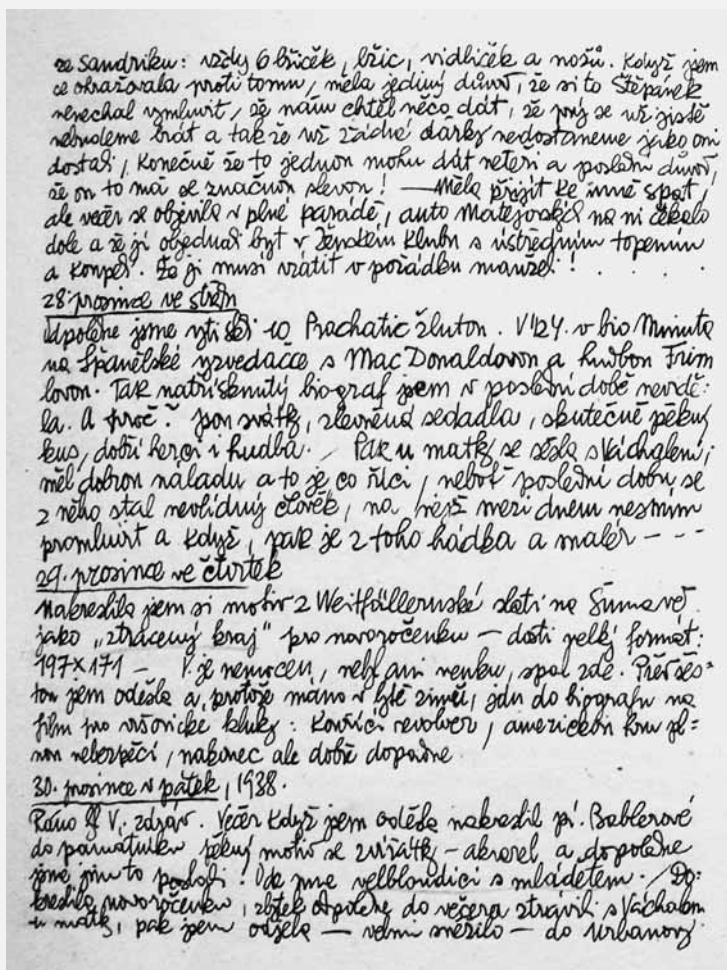 ze Sandriku: vždy 6 lžiček, lžic, vidliček a nožů. Když jem
se ohražovala proti tomu, měla jediný důvod, že si to Štěpánek
nenechal vymluvit, že nám chtěl něco dát, že prý se už jistě
nebudeme brát a tak že už žádné dárky nedostaneme jako oni
dostali, Konečně že to jednou mohu dát neteři a poslední důvod,
že on to má se značnou slevou! — Měla přijít ke mně spát,
ale večer se objevila v plné parádě, auto Matějovských na ni čekalo
dole a že jí objednali byt v Ženském Klubu s ústředním topením
a koupel. Že ji musí vrátit v pořádku manžel! . . . .
28 prosince ve středu
odpoledne jsme vytiskli 10 Prachatic žlutou. V 1/2 4. v bio Minuta
na Španělské vyzvědačce s Mac Donaldovou a hudbou Friml
lovou. Tak natřísknutý biograf jsem v poslední době nevidě:
la. A proč? jsou svátky, zlevněná sedadla, skutečně pěkný
kus, dobří herci i hudba. Pak u matky se sešla s Váchalem;
měl dobrou náladu a to je co říci, neboť poslední dobu se
z něho stal nevlídný člověk, na nejž mezi dnem nesmím
promluvit a když, pak je z toho hádka a malér – – -
29. prosince ve čtvrtek
Nakreslila jsem si motiv z Weitfällernské slati na Šumavě
jako „ztracený kraj" pro novoročenku — dosti velký formát:
197×171 – V. je nemocen, nebyl ani venku, spal zde. Před šes=
tou jsem odešla a, protože máno v bytě zimu, jdu do biografu na
film pro výborné kluky: Kouřící revolver, americkém pl=
non nebezpečí, nakonec ale dobře dopadne.
30. prosince v pátek, 1938.
Ráno V. zdráv. Večer když jsem odešla nakreslil pí. Bablerové
do památníku pěkný motiv se zvířátky – akvarel a dopoledne
jsme jim to poslali. Ode mne velbloudici s mládětem. Do:
kreslila novoročenku, zbytek odpoledne do večera strávili s Váchalem
u matky, pak jsem odjela — velmi sněžilo — do Urbanovy